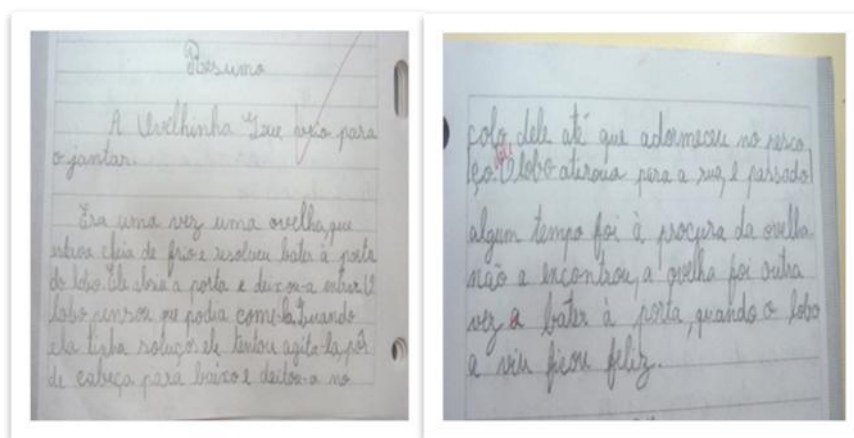 Resumo
A Ovelhinha Que veio para
o jantar.
Era uma vez uma ovelha, que
estava cheia de frio e resolveu bater à porta
do lobo. Ele abriu a porta e deixou-a entrar. O
lobo pensou que podia come-la. Quando
ela tinha soluços ele tentou agita-la, pôr
de cabeça para baixo e deitou-a no
colo dele até que adormeceu no pesco
ço. O lobo atiroua para a rua, e passado
algum tempo foi à procura da ovelha
não a encontrou, a ovelha foi outra
vez a bater à porta, quando o lobo
a viu ficou feliz.